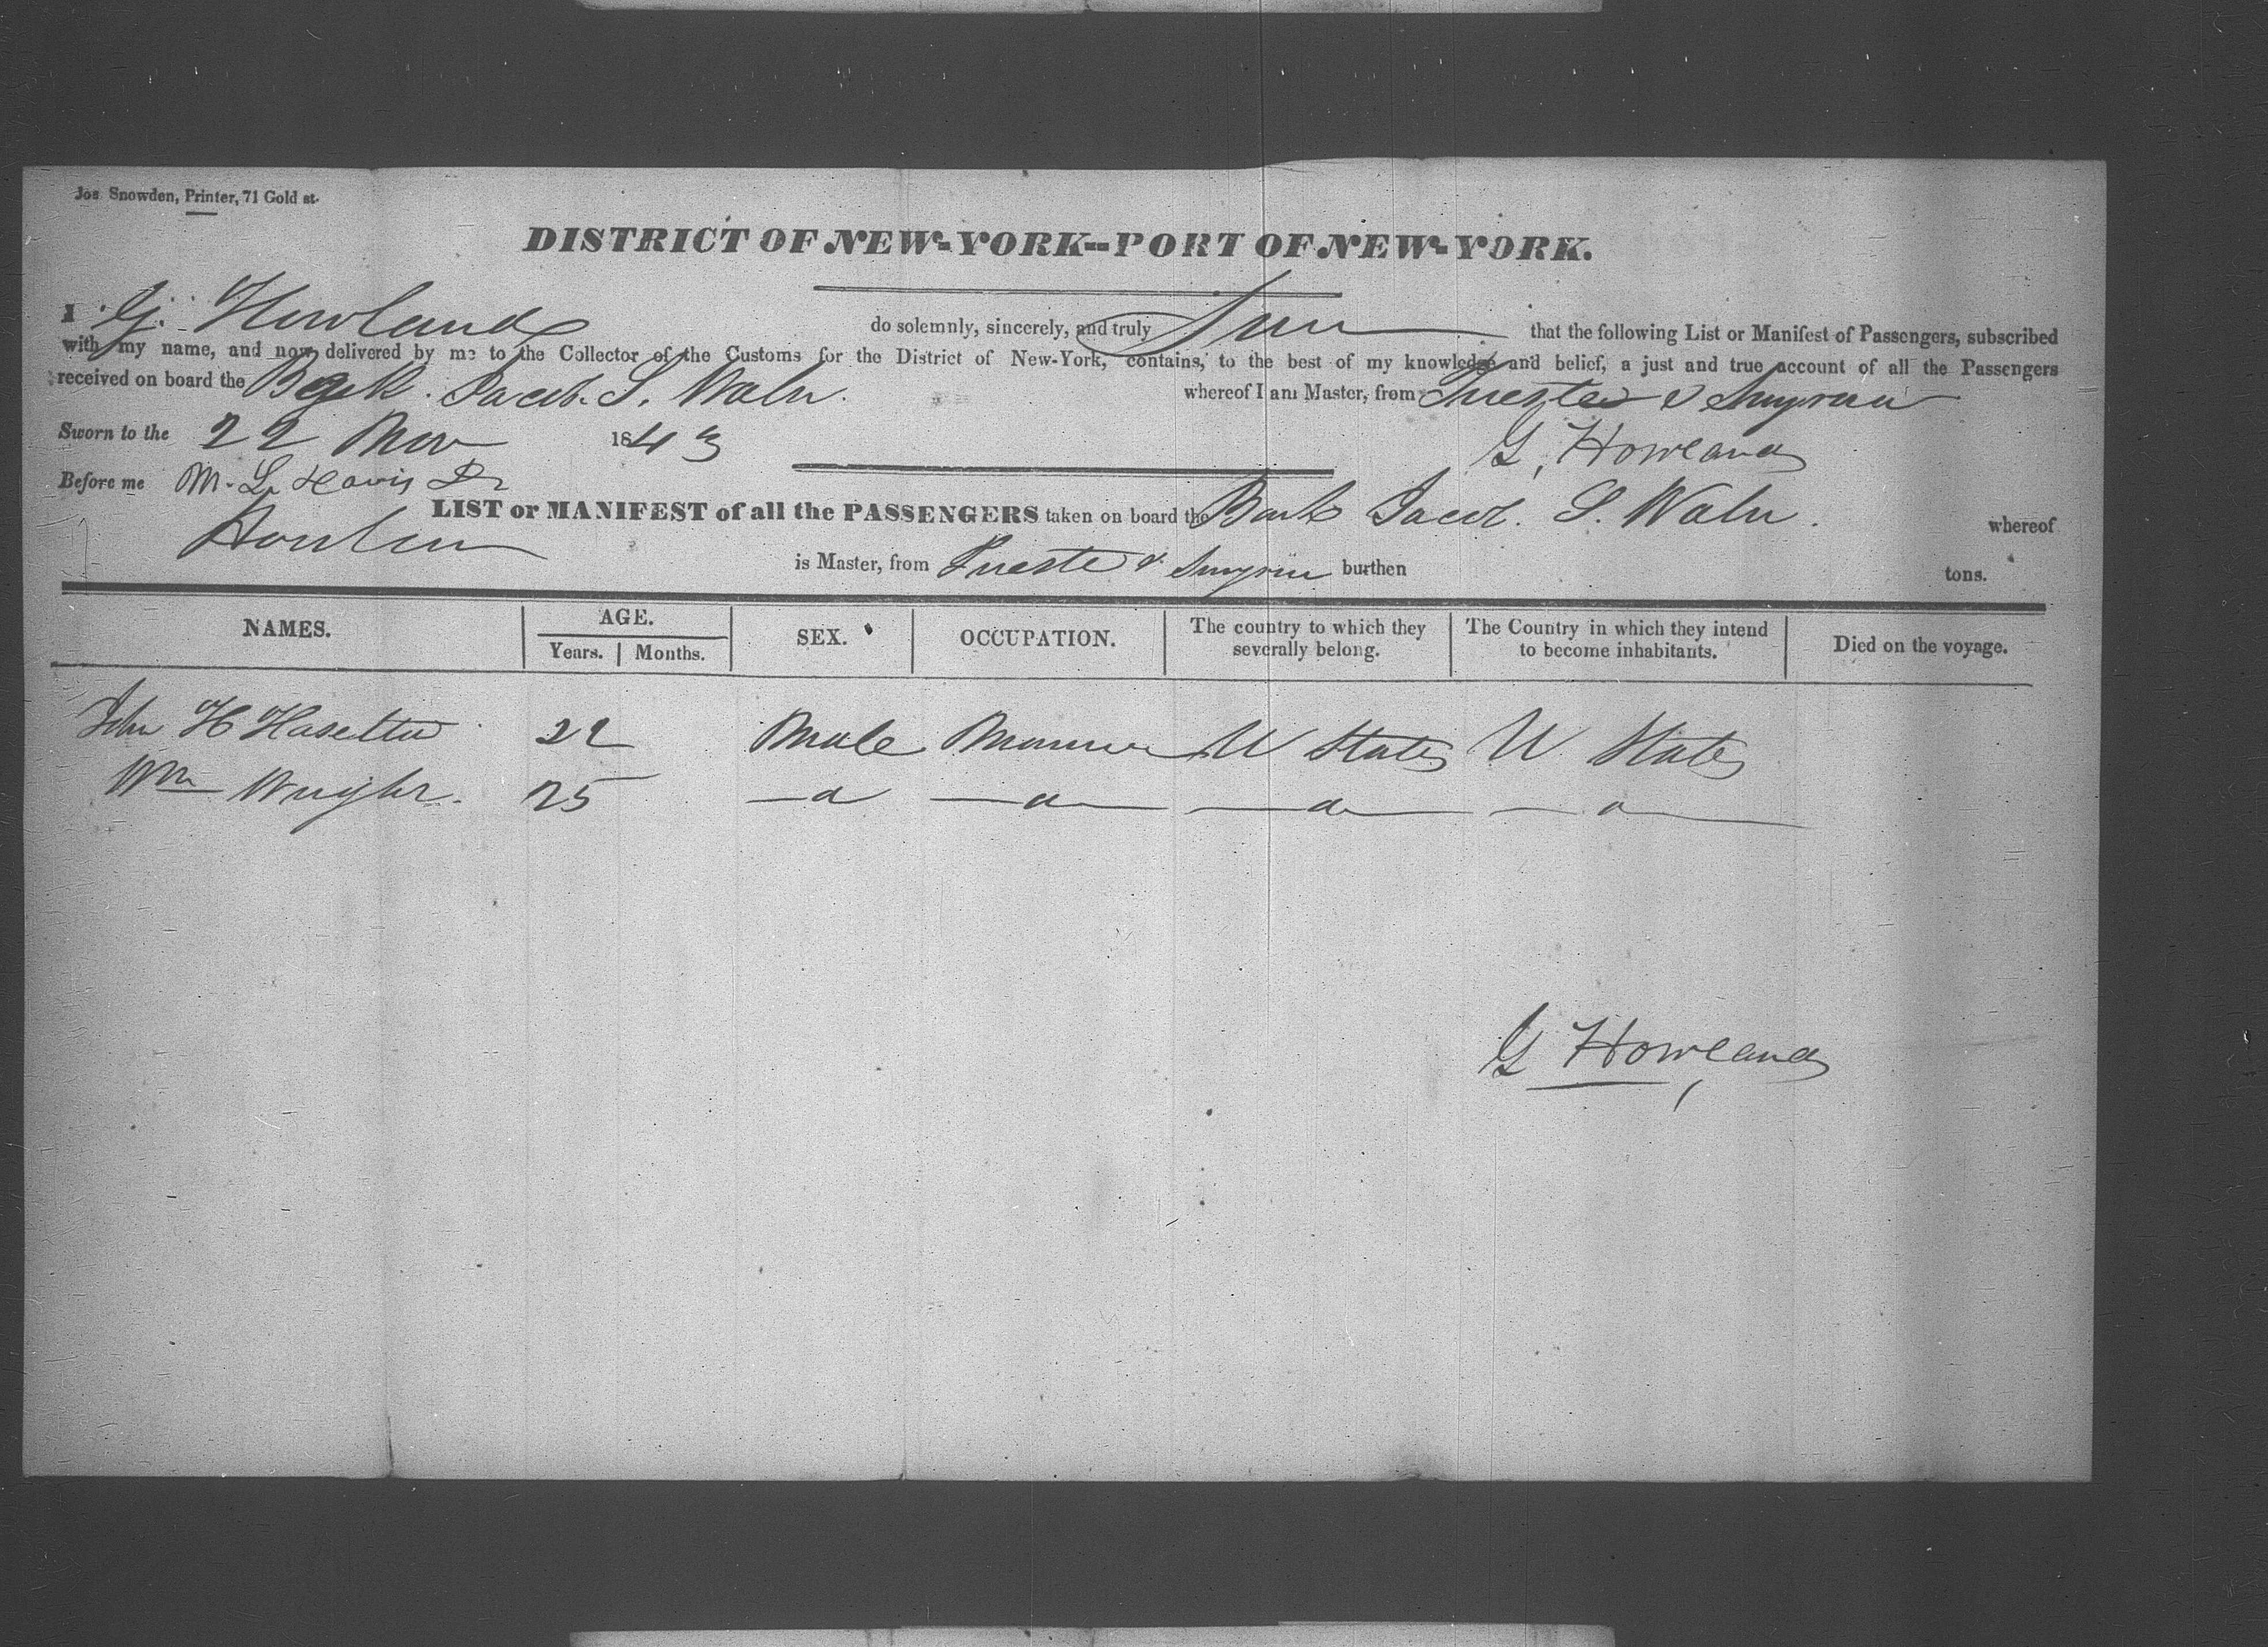 Jos Snowden, Printer, 71 Gold st.
DISTRICT OF NEW-YORK--PORT OF NEW-YORK.
I G. Howland do solemnly, sincerely, and truly that the following List or Manifest of Passengers, subscribed
with my name, and now delivered by me to the Collector of the Customs for the District of New-York, contains, to the best of my knowledge and belief, a just and true account of all the Passengers
received on board the Bark Jacob. S. Waln. whereof I am Master, from Trieste & Smyrna
Sworn to the 22 Nov 1843 G, Howland
Before me M. L. Davis
LIST or MANIFEST of all the PASSENGERS taken on board the Bark Jacob. S. Waln. whereof
is Master, from Trieste & Smyrna burthen tons.
NAMES. AGE. SEX. OCCUPATION. The country to which they severally belong. The Country in which they intend to become inhabitants. Died on the voyage.
Years. Months.
John H Haselton 22 Male Mariner U States U. States
Wm Wright. 25
G Howland